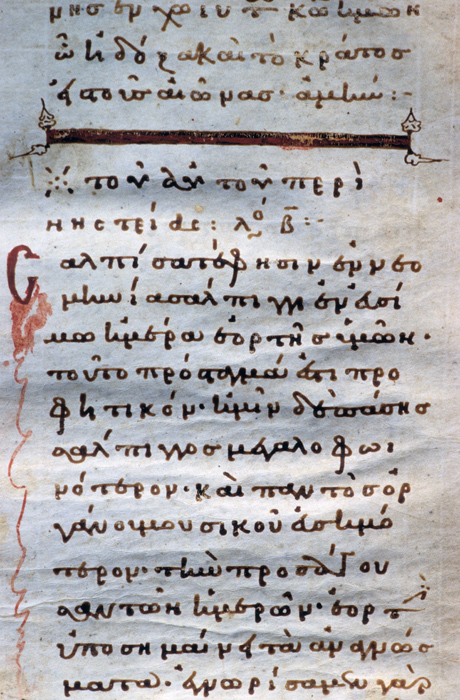 ἐν χω ιυ τω κω ημων
ὧ ἡ δόξα καὶ τὸ κράτος
εἰς τοὺς αἰῶνας· ἀμήν:-
τοῦ αὐτοῦ περὶ
νηστείας: λό β:-
Σαλπίσατέ φησιν ἐν νεο
μηνίᾳ σάλπιγγι ἐν εὐσή
μω ἡμέρα ἑορτῆς ὑμῶν·
τοῦτο πρόσταγμά ἐστι προ
φητικόν· ἡμῖν δὲ πάσης
σάλπιγγος μεγαλοφωι
νότερον· καὶ παντὸς ὀρ
γάνου μουσικοῦ εὐσημό
τερον· τὴν προσάγου
σαν τῶν ἡμερῶν· ἑορτὴν
ὑποσημαίνει τὰ ἀναγνώσ
ματα· ἐγνωρίσαμεν γὰρ